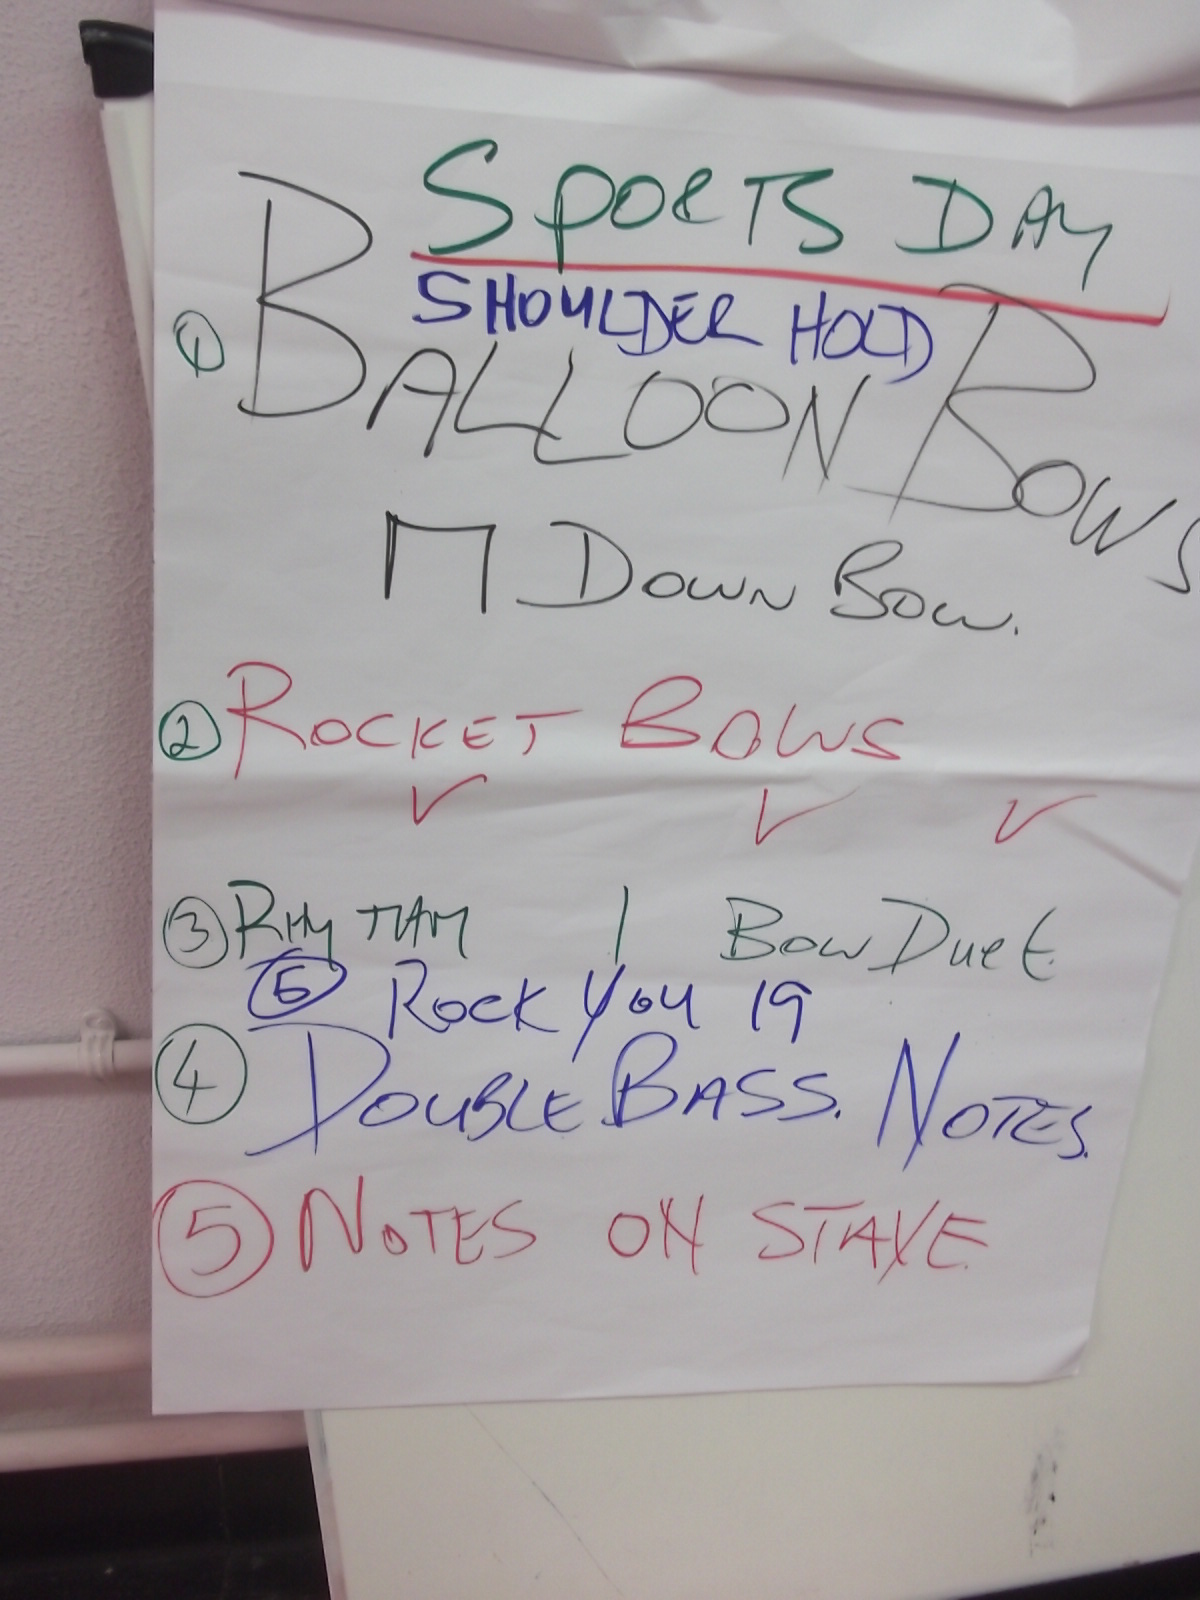 SPORTS DAY
SHOULDER HOLD
① BALLOON BOWS
DOWN BOW.
② ROCKET BOWS
③ RHYTHM 1 BOW DUET
⑥ ROCK YOU 19
④ DOUBLE BASS. NOTES.
⑤ NOTES ON STAVE